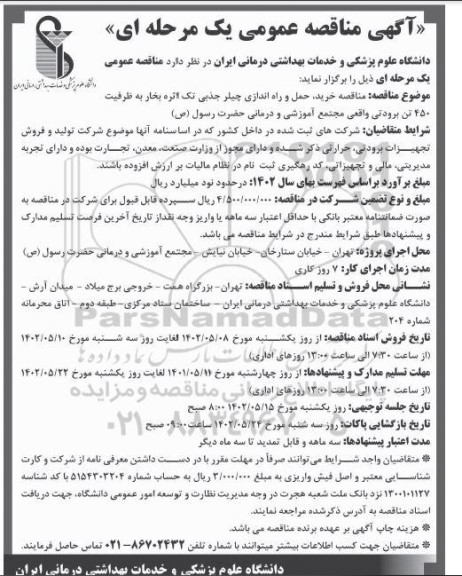 «آگهی مناقصه عمومی یک مرحله ای»
دانشگاه علوم پزشکی و خدمات بهداشتی درمانی ایران در نظر دارد مناقصه عمومی
یک مرحله ای ذیل را برگزار نماید:
موضوع مناقصه: مناقصه خرید، حمل و راه اندازی چیلر جذبی تک اثره بخار به ظرفیت
۴۵۰ تن برودتی واقعی مجتمع آموزشی و درمانی حضرت رسول (ص)
شرایط متقاضیان: شرکت های ثبت شده در داخل کشور که در اساسنامه آنها موضوع شرکت تولید و فروش
تجهیزات برودتی، حرارتی ذکر شده و دارای مجوز از وزارت صنعت، معدن، تجارت بوده و دارای تجربه
مدیریتی، مالی و تجهیزاتی، کد رهگیری ثبت نام در نظام مالیات بر ارزش افزوده باشند.
مبلغ برآورد براساس فهرست بهای سال ۱۴۰۲: درحدود نود میلیارد ریال
مبلغ و نوع تضمین شرکت در مناقصه: ۴/۵۰۰/۰۰۰/۰۰۰ ریال سپرده قابل قبول برای شرکت در مناقصه به
صورت ضمانتنامه معتبر بانکی با حداقل اعتبار سه ماهه یا واریز وجه نقداز تاریخ آخرین فرصت تسلیم مدارک
و پیشنهادها طبق شرایط مندرج در شرایط مناقصه می باشد.
محل اجرای پروژه: تهران - خیابان ستارخان- خیابان نیایش -مجتمع آموزشی و درمانی حضرت رسول (ص)
مدت زمان اجرای کار: ۷ روز کاری
نشانی محل فروش و تسلیم اسناد مناقصه: تهران- بزرگراه همت - خروجی برج میلاد - میدان آرش -
دانشگاه علوم پزشکی و خدمات بهداشتی درمانی ایران - ساختمان ستاد مرکزی- طبقه دوم - اتاق محرمانه
شماره ۲۰۴
تاریخ فروش اسناد مناقصه: از روز یکشنبه مورخ ۱۴۰۲/۰۵/۰۸ لغایت روز سه شنبه مورخ ۱۴۰۲/۰۵/۱۰
(از ساعت ۷:۳۰ الی ساعت ۱۳:۰۰ روزهای اداری)
مهلت تسلیم مدارک و پیشنهادها: از روز چهارشنبه مورخ ۱۴۰۱/۰۵/۱۱ لغایت روز یکشنبه مورخ ۱۴۰۲/۰۵/۲۲
(از ساعت ۷:۳۰ الی ساعت ۱۳:۰۰ روزهای اداری)
تاریخ جلسه توجیهی: روز یکشنبه مورخ ۱۴۰۲/۰۵/۱۵ ۸:۰۰ صبح
تاریخ بازگشایی پاکات: روز سه شنبه مورخ ۱۴۰۲/۰۵/۲۴ ساعت ۰۹:۰۰ صبح
مدت اعتبار پیشنهادها: سه ماهه و قابل تمدید تا سه ماه دیگر
* متقاضیان واجد شرایط می‌توانند صرفاً در مهلت مقرر با در دست داشتن معرفی نامه از شرکت و کارت
شناسایی معتبر و اصل فیش واریزی به مبلغ ۳/۰۰۰/۰۰۰ ریال به حساب شماره ۵۱۵۴۳۰۳۲۰۴ با کد شناسه
۱۳۰۰۱۰۱۱۳۷ نزد بانک ملت شعبه هجرت در وجه مدیریت نظارت و توسعه امور عمومی دانشگاه، جهت دریافت
اسناد مناقصه به آدرس ذکرشده مراجعه نمایند.
* هزینه چاپ آگهی بر عهده برنده مناقصه می باشد.
* متقاضیان جهت کسب اطلاعات بیشتر میتوانند با شماره تلفن ۸۶۷۰۲۴۳۲-۰۲۱ تماس حاصل فرمایند.
دانشگاه علوم پزشکی و خدمات بهداشتی درمانی ایران